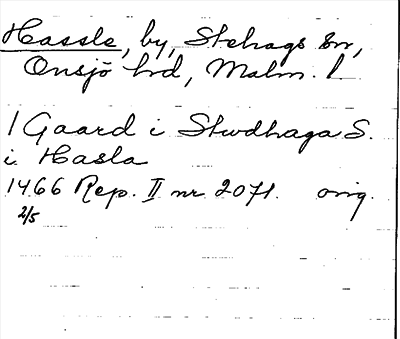 Hassle, by, Stehags sn,
Onsjö hrd, Malm. l
1 Gaard i Stwdhaga S.
i Hasla
1466 Rep. II nr 2071. orig.
2/5